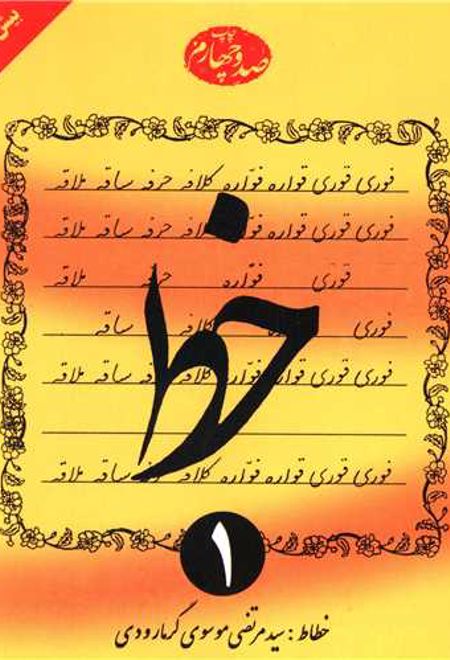 چاپ
صد و چهارم
فوری قوری قواره فوّاره کلافه حرفه ساقه ملاقه
فوری قوری قواره کلافه حرفه ساقه ملاقه
قوری فوّاره ملاقه
فوری کلافه ساقه
فوری قوری قواره فوّاره کلافه حرفه ساقه ملاقه
فوری قوری قواره فوّاره کلافه حرفه ساقه ملاقه
خط
۱
خطاط : سید مرتضی موسوی گرمارودی